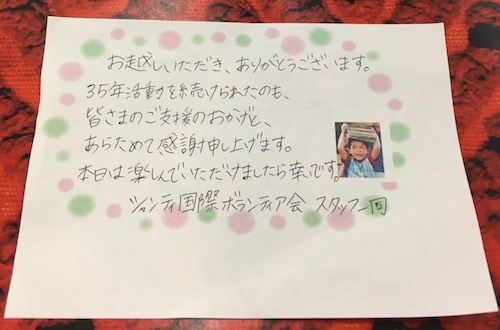 お越しいただき、ありがとうございます。
35年活動を続けられたのも、
皆さまのご支援のおかげと、
あらためて感謝申し上げます。
本日は楽しんでいただけましたら幸いです。
シャンティ国際ボランティア会 スタッフ一同